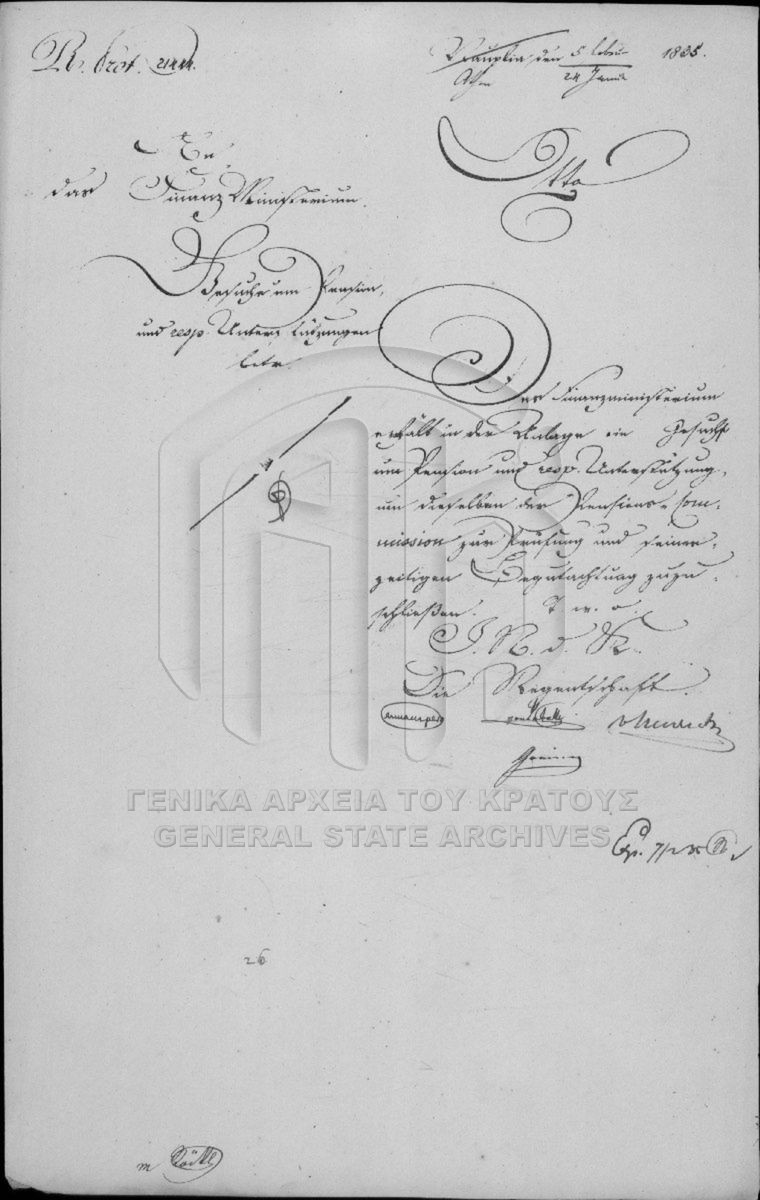 R. Prot.
Nauplia den 5 Febr. 1835.
Athen 24 Januar
Otto
An
das Finanz Ministerium.
Gesuche um Pension,
und resp. Unterstützungen
betr.
Das Finanzministerium
erhält in der Anlage ein Gesuch
um Pension und resp. Unterstützung,
um dieselben der Pensions-Com-
mission zur Prüfung und seiner-
zeitigen Begutachtung zuzu-
schließen.
I. N. d. K.
Die Regentschaft.
Armansperg
vHeideck
Greiner
Exp. 7/2 35
26
ΓΕΝΙΚΑ ΑΡΧΕΙΑ ΤΟΥ ΚΡΑΤΟΥΣ
GENERAL STATE ARCHIVES